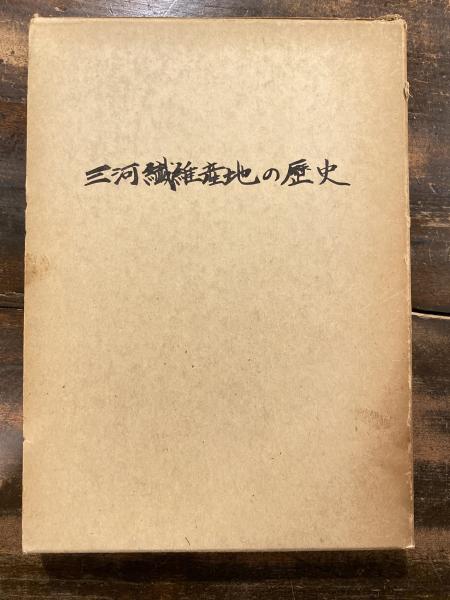 三河繊維産地の歴史